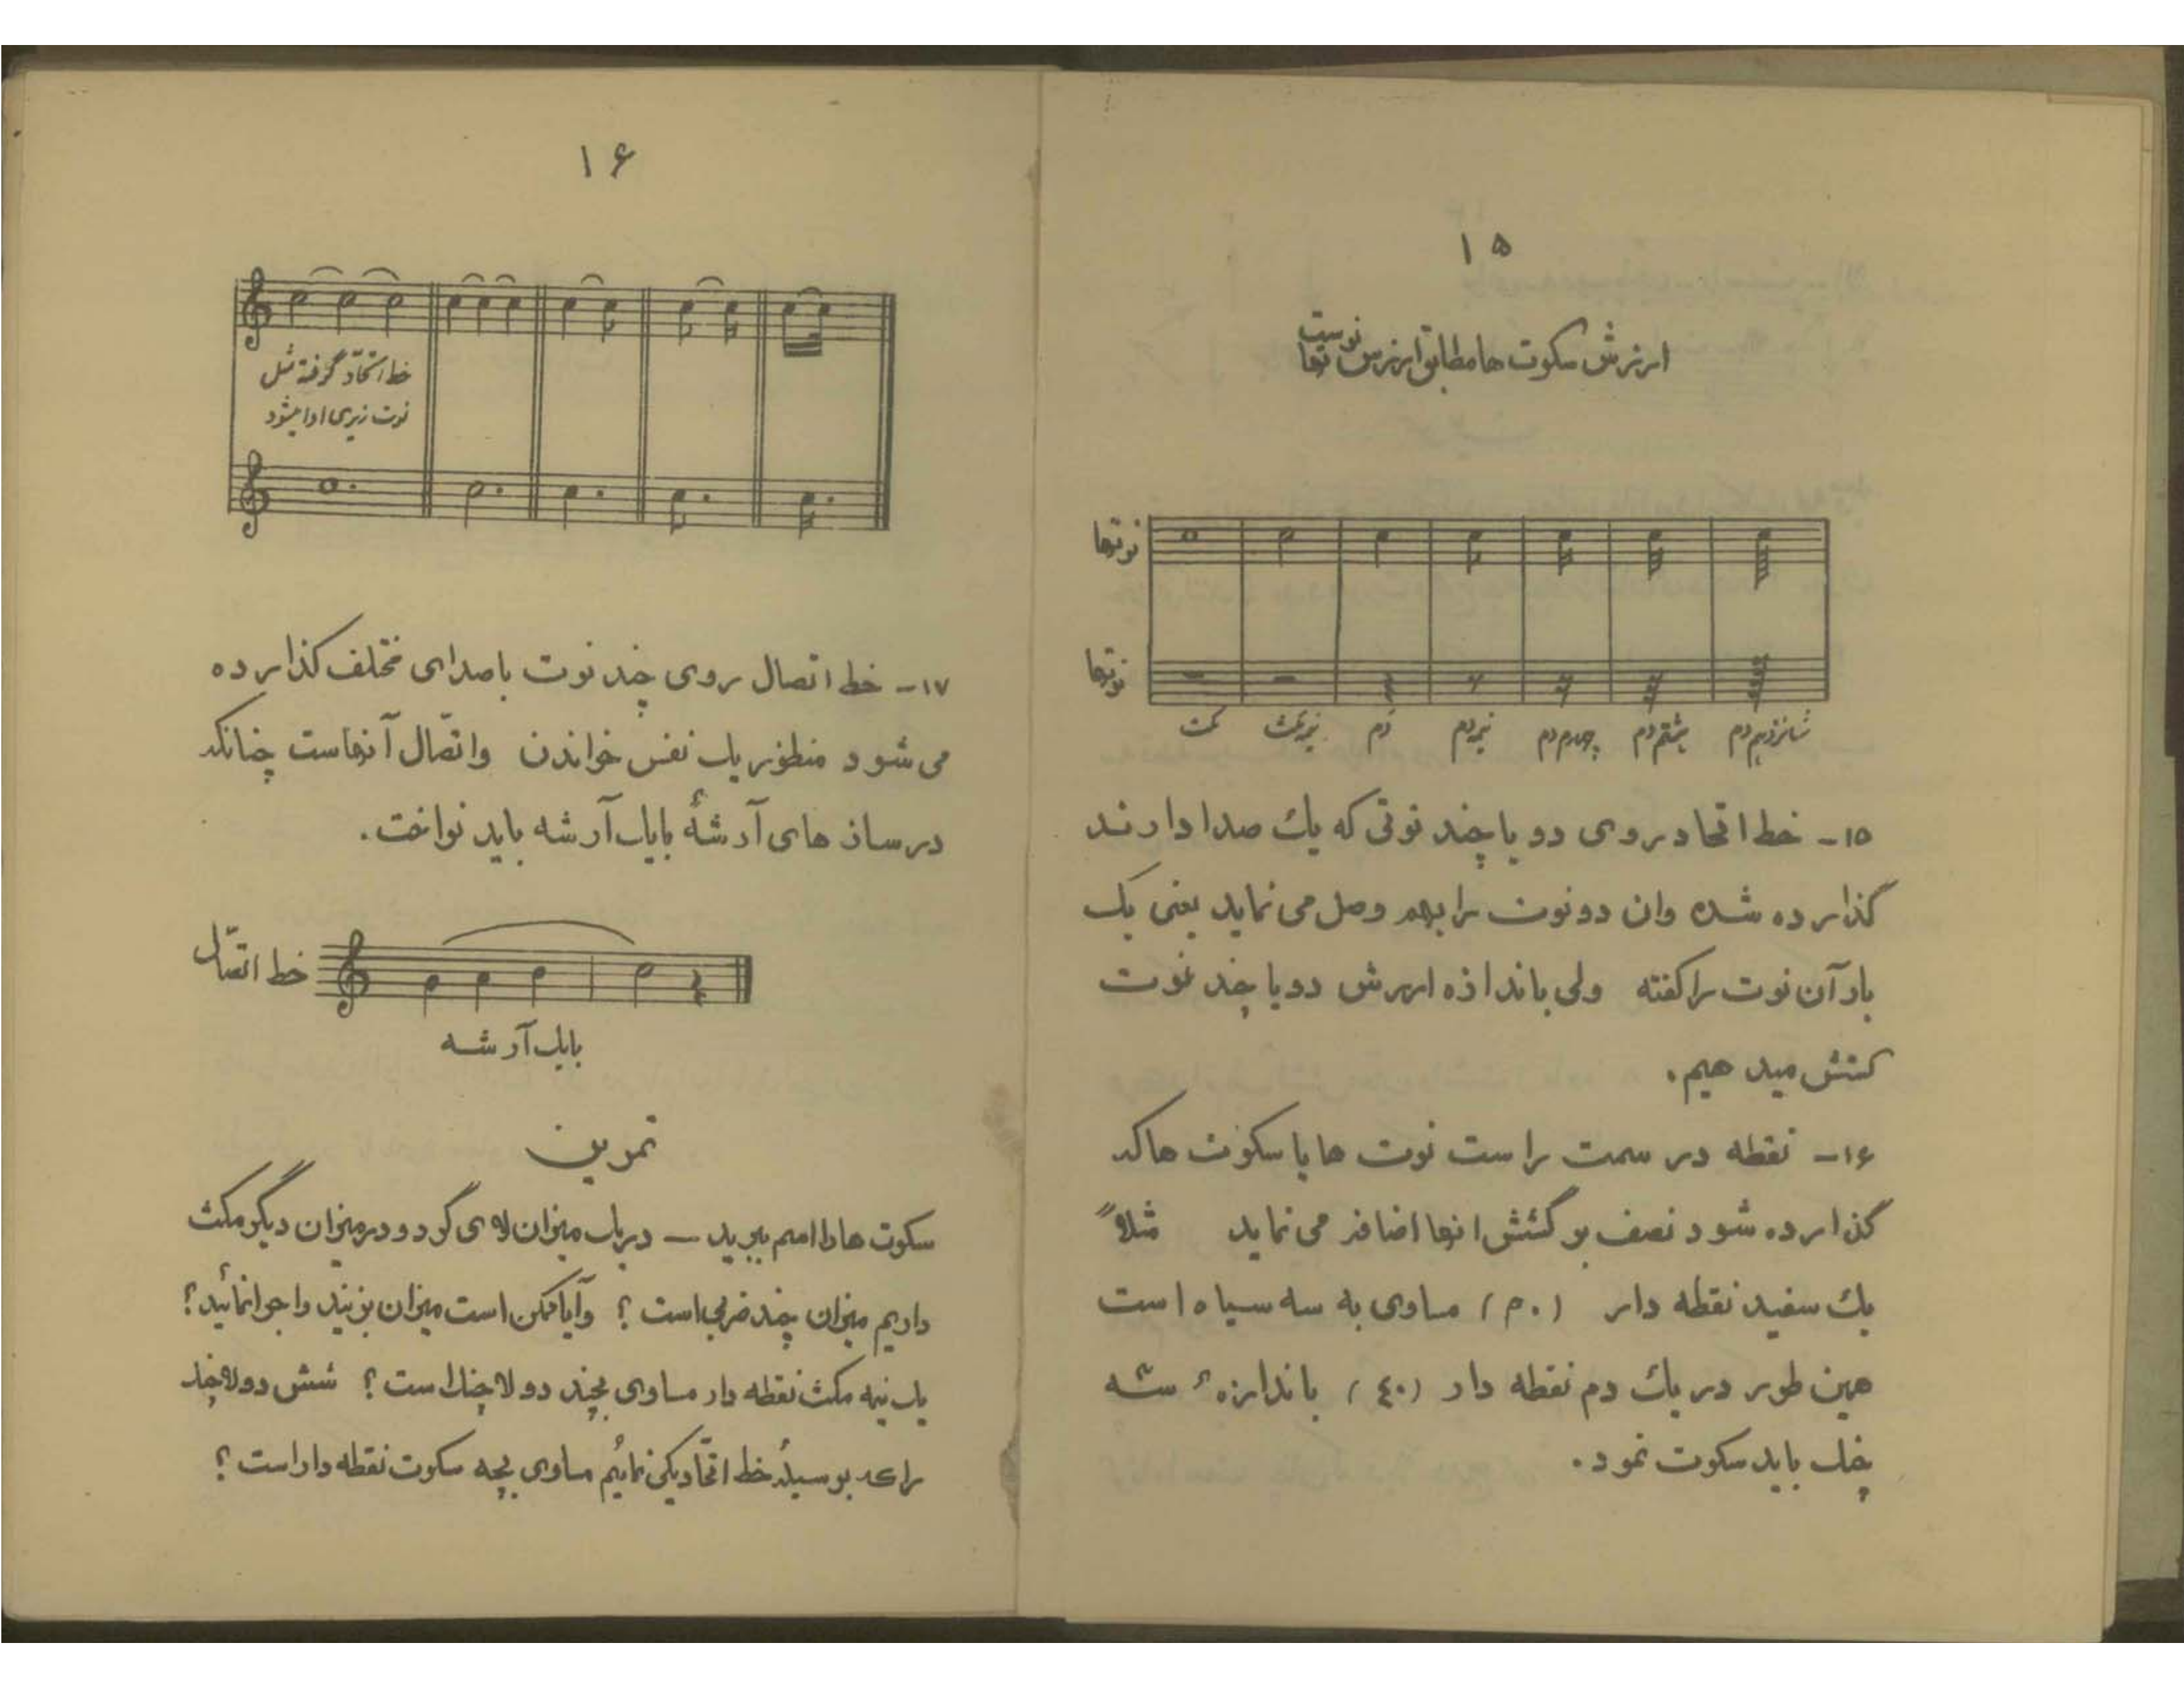 ۱۵
ارزش سکوت ها مطابق ارزش نوت هاست
نوتها
نوتها
مکث نیم مکث دم نیم دم چهارم دم هشتم دم شانزدهم دم
۱۵- خط اتحاد روی دو یا چند نوتی که یك صدا دارند
گذارده شده وان دو نوت را بهم وصل می نماید یعنی یک
بار آن نوت را گفته ولی باندازه ارزش دو یا چند نوت
کشش میدهیم.
۱۶- نقطه در سمت راست نوت ها یا سکوت ها که
گذارده شود نصف بر کشش انها اضافه می نماید مثلاً
یك سفید نقطه دار ( ) مساوی به سه سیاه است
همین طور در یك دم نقطه دار ( ) باندازهٔ سه
چنك باید سکوت نمود.
۱۶
خط اتحّاد گرفته مثل
نوت زیری ادا میشود
۱۷- خط اتصال روی چند نوت با صدای مختلف گذارده
می شود منظور یك نفس خواندن واتصّال آنهاست چنانکه
در سازهای آرشهٔ با یك آرشه باید نواخت.
خط اتصّال
با یك آرشه
تمرین
سکوت ها را اسم ببرید — در یك میزان لای گرد و در میزان دیگر مکث
داریم میزان چند ضربی است ؟ وآیا ممکن است میزان بزنید واجرا نمائید؟
یك نیمه مکث نقطه دار مساوی بچند دولاچنك است ؟ شش دولاچنك
را که بوسیلهٔ خط اتحّاد یکی نمائیم مساوی بچه سکوت نقطه دار است ؟